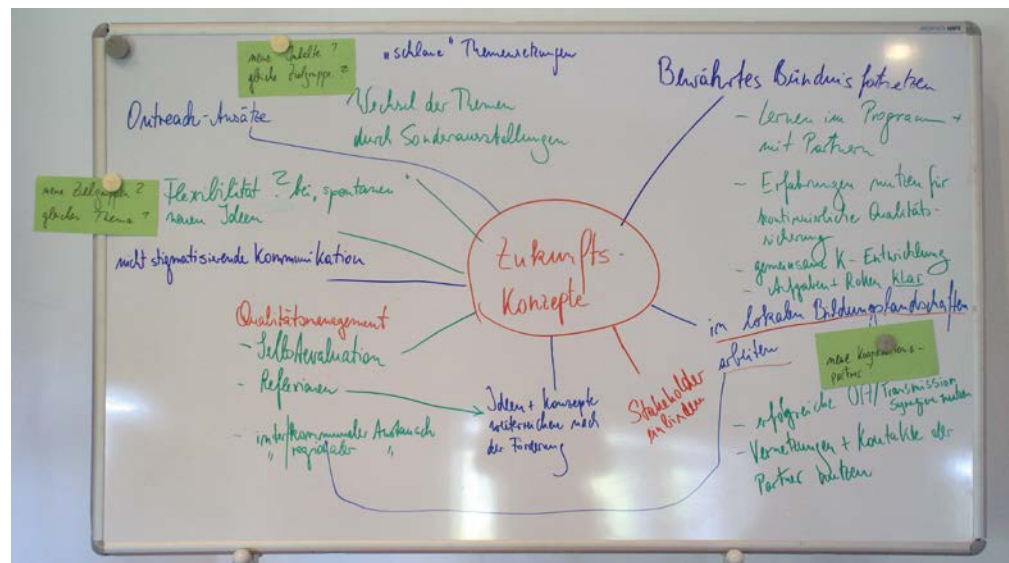 neue Inhalte?
gleiche Zielgruppe?
"schlaue" Themensetzungen
Outreach-Ansätze
Wechsel der Themen
durch Sonderausstellungen
neue Zielgruppen?
gleiches Thema?
Flexibilität? bei, spontanen"
neuen Ideen
nicht stigmatisierende Kommunikation
Qualitätsmanagement
- Selbstevaluation
- Reflexionen
- interkommunaler Austausch
" regionaler "
Zukunfts-
Konzepte
Ideen + Konzepte
weiterreichen nach
der Förderung
Stakeholder
einbinden
Bewährtes Bündnis fortsetzen
- Lernen im Programm +
mit Partnern
- Erfahrungen nutzen für
kontinuierliche Qualitäts-
sicherung
- gemeinsame K-Entwicklung
- Aufgaben + Rollen klar
in lokalen Bildungslandschaften
arbeiten
neue Kooperations-
partner
- erfolgreiche ÖA/Transmission
Synergien nutzen
- Vernetzungen + Kontakte der
Partner nutzen